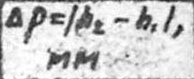 Δp=|h₂-h₁|,
мм